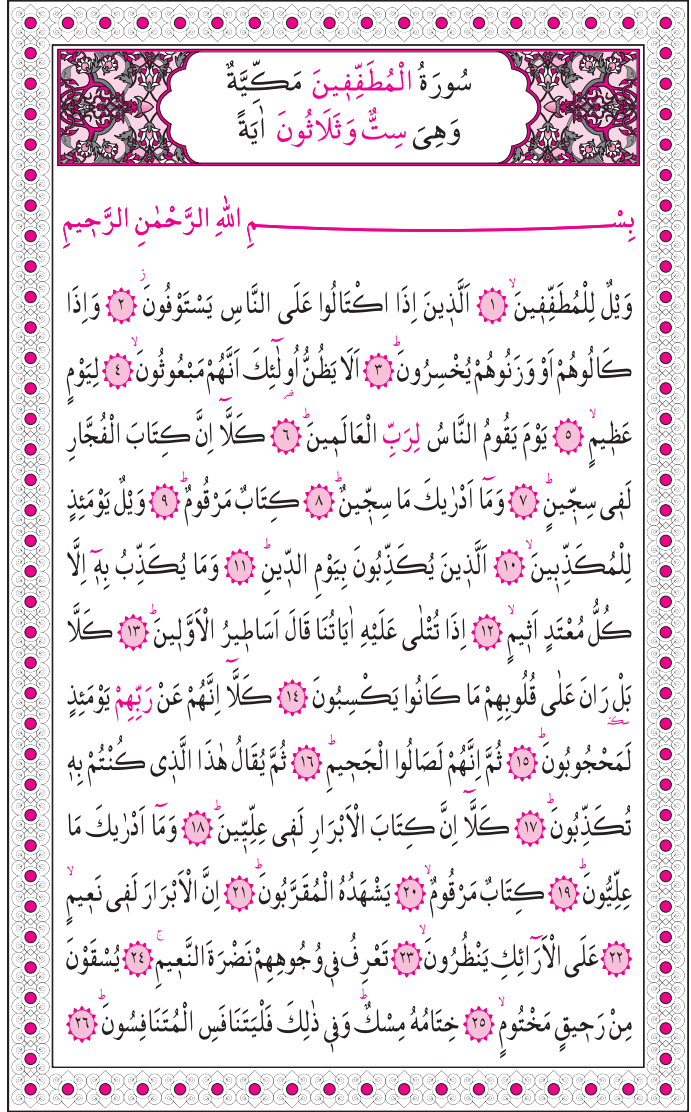 سُورَةُ الْمُطَفِّفٖينَ مَكِّيَّةٌ
وَهِىَ سِتٌّ وَثَلَاثُونَ اٰيَةً
بِسْمِ اللّٰهِ الرَّحْمٰنِ الرَّحٖيمِ
وَيْلٌ لِلْمُطَفِّفٖينَۙ ﴿١﴾ اَلَّذٖينَ اِذَا اكْتَالُوا عَلَى النَّاسِ يَسْتَوْفُونَؗ ﴿٢﴾ وَاِذَا
كَالُوهُمْ اَوْ وَزَنُوهُمْ يُخْسِرُونَؕ ﴿٣﴾ اَلَا يَظُنُّ اُولٰٓئِكَ اَنَّهُمْ مَبْعُوثُونَۙ ﴿٤﴾ لِيَوْمٍ
عَظٖيمٍۙ ﴿٥﴾ يَوْمَ يَقُومُ النَّاسُ لِرَبِّ الْعَالَمٖينَؕ ﴿٦﴾ كَلَّٓا اِنَّ كِتَابَ الْفُجَّارِ
لَفٖى سِجّٖينٍؕ ﴿٧﴾ وَمَٓا اَدْرٰيكَ مَا سِجّٖينٌؕ ﴿٨﴾ كِتَابٌ مَرْقُومٌؕ ﴿٩﴾ وَيْلٌ يَوْمَئِذٍ
لِلْمُكَذِّبٖينَۙ ﴿١٠﴾ اَلَّذٖينَ يُكَذِّبُونَ بِيَوْمِ الدّٖينِؕ ﴿١١﴾ وَمَا يُكَذِّبُ بِهٖٓ اِلَّا
كُلُّ مُعْتَدٍ اَثٖيمٍۙ ﴿١٢﴾ اِذَا تُتْلٰى عَلَيْهِ اٰيَاتُنَا قَالَ اَسَاطٖيرُ الْاَوَّلٖينَؕ ﴿١٣﴾ كَلَّا
بَلْ رَانَ عَلٰى قُلُوبِهِمْ مَا كَانُوا يَكْسِبُونَ ﴿١٤﴾ كَلَّٓا اِنَّهُمْ عَنْ رَبِّهِمْ يَوْمَئِذٍ
لَمَحْجُوبُونَؕ ﴿١٥﴾ ثُمَّ اِنَّهُمْ لَصَالُوا الْجَحٖيمِؕ ﴿١٦﴾ ثُمَّ يُقَالُ هٰذَا الَّذٖى كُنْتُمْ بِهٖ
تُكَذِّبُونَؕ ﴿١٧﴾ كَلَّٓا اِنَّ كِتَابَ الْاَبْرَارِ لَفٖى عِلِّيّٖينَؕ ﴿١٨﴾ وَمَٓا اَدْرٰيكَ مَا
عِلِّيُّونَؕ ﴿١٩﴾ كِتَابٌ مَرْقُومٌۙ ﴿٢٠﴾ يَشْهَدُهُ الْمُقَرَّبُونَؕ ﴿٢١﴾ اِنَّ الْاَبْرَارَ لَفٖى نَعٖيمٍۙ
﴿٢٢﴾ عَلَى الْاَرَٓائِكِ يَنْظُرُونَۙ ﴿٢٣﴾ تَعْرِفُ فٖى وُجُوهِهِمْ نَضْرَةَ النَّعٖيمِۚ ﴿٢٤﴾ يُسْقَوْنَ
مِنْ رَحٖيقٍ مَخْتُومٍۙ ﴿٢٥﴾ خِتَامُهُ مِسْكٌؕ وَفٖى ذٰلِكَ فَلْيَتَنَافَسِ الْمُتَنَافِسُونَؕ ﴿٢٦﴾